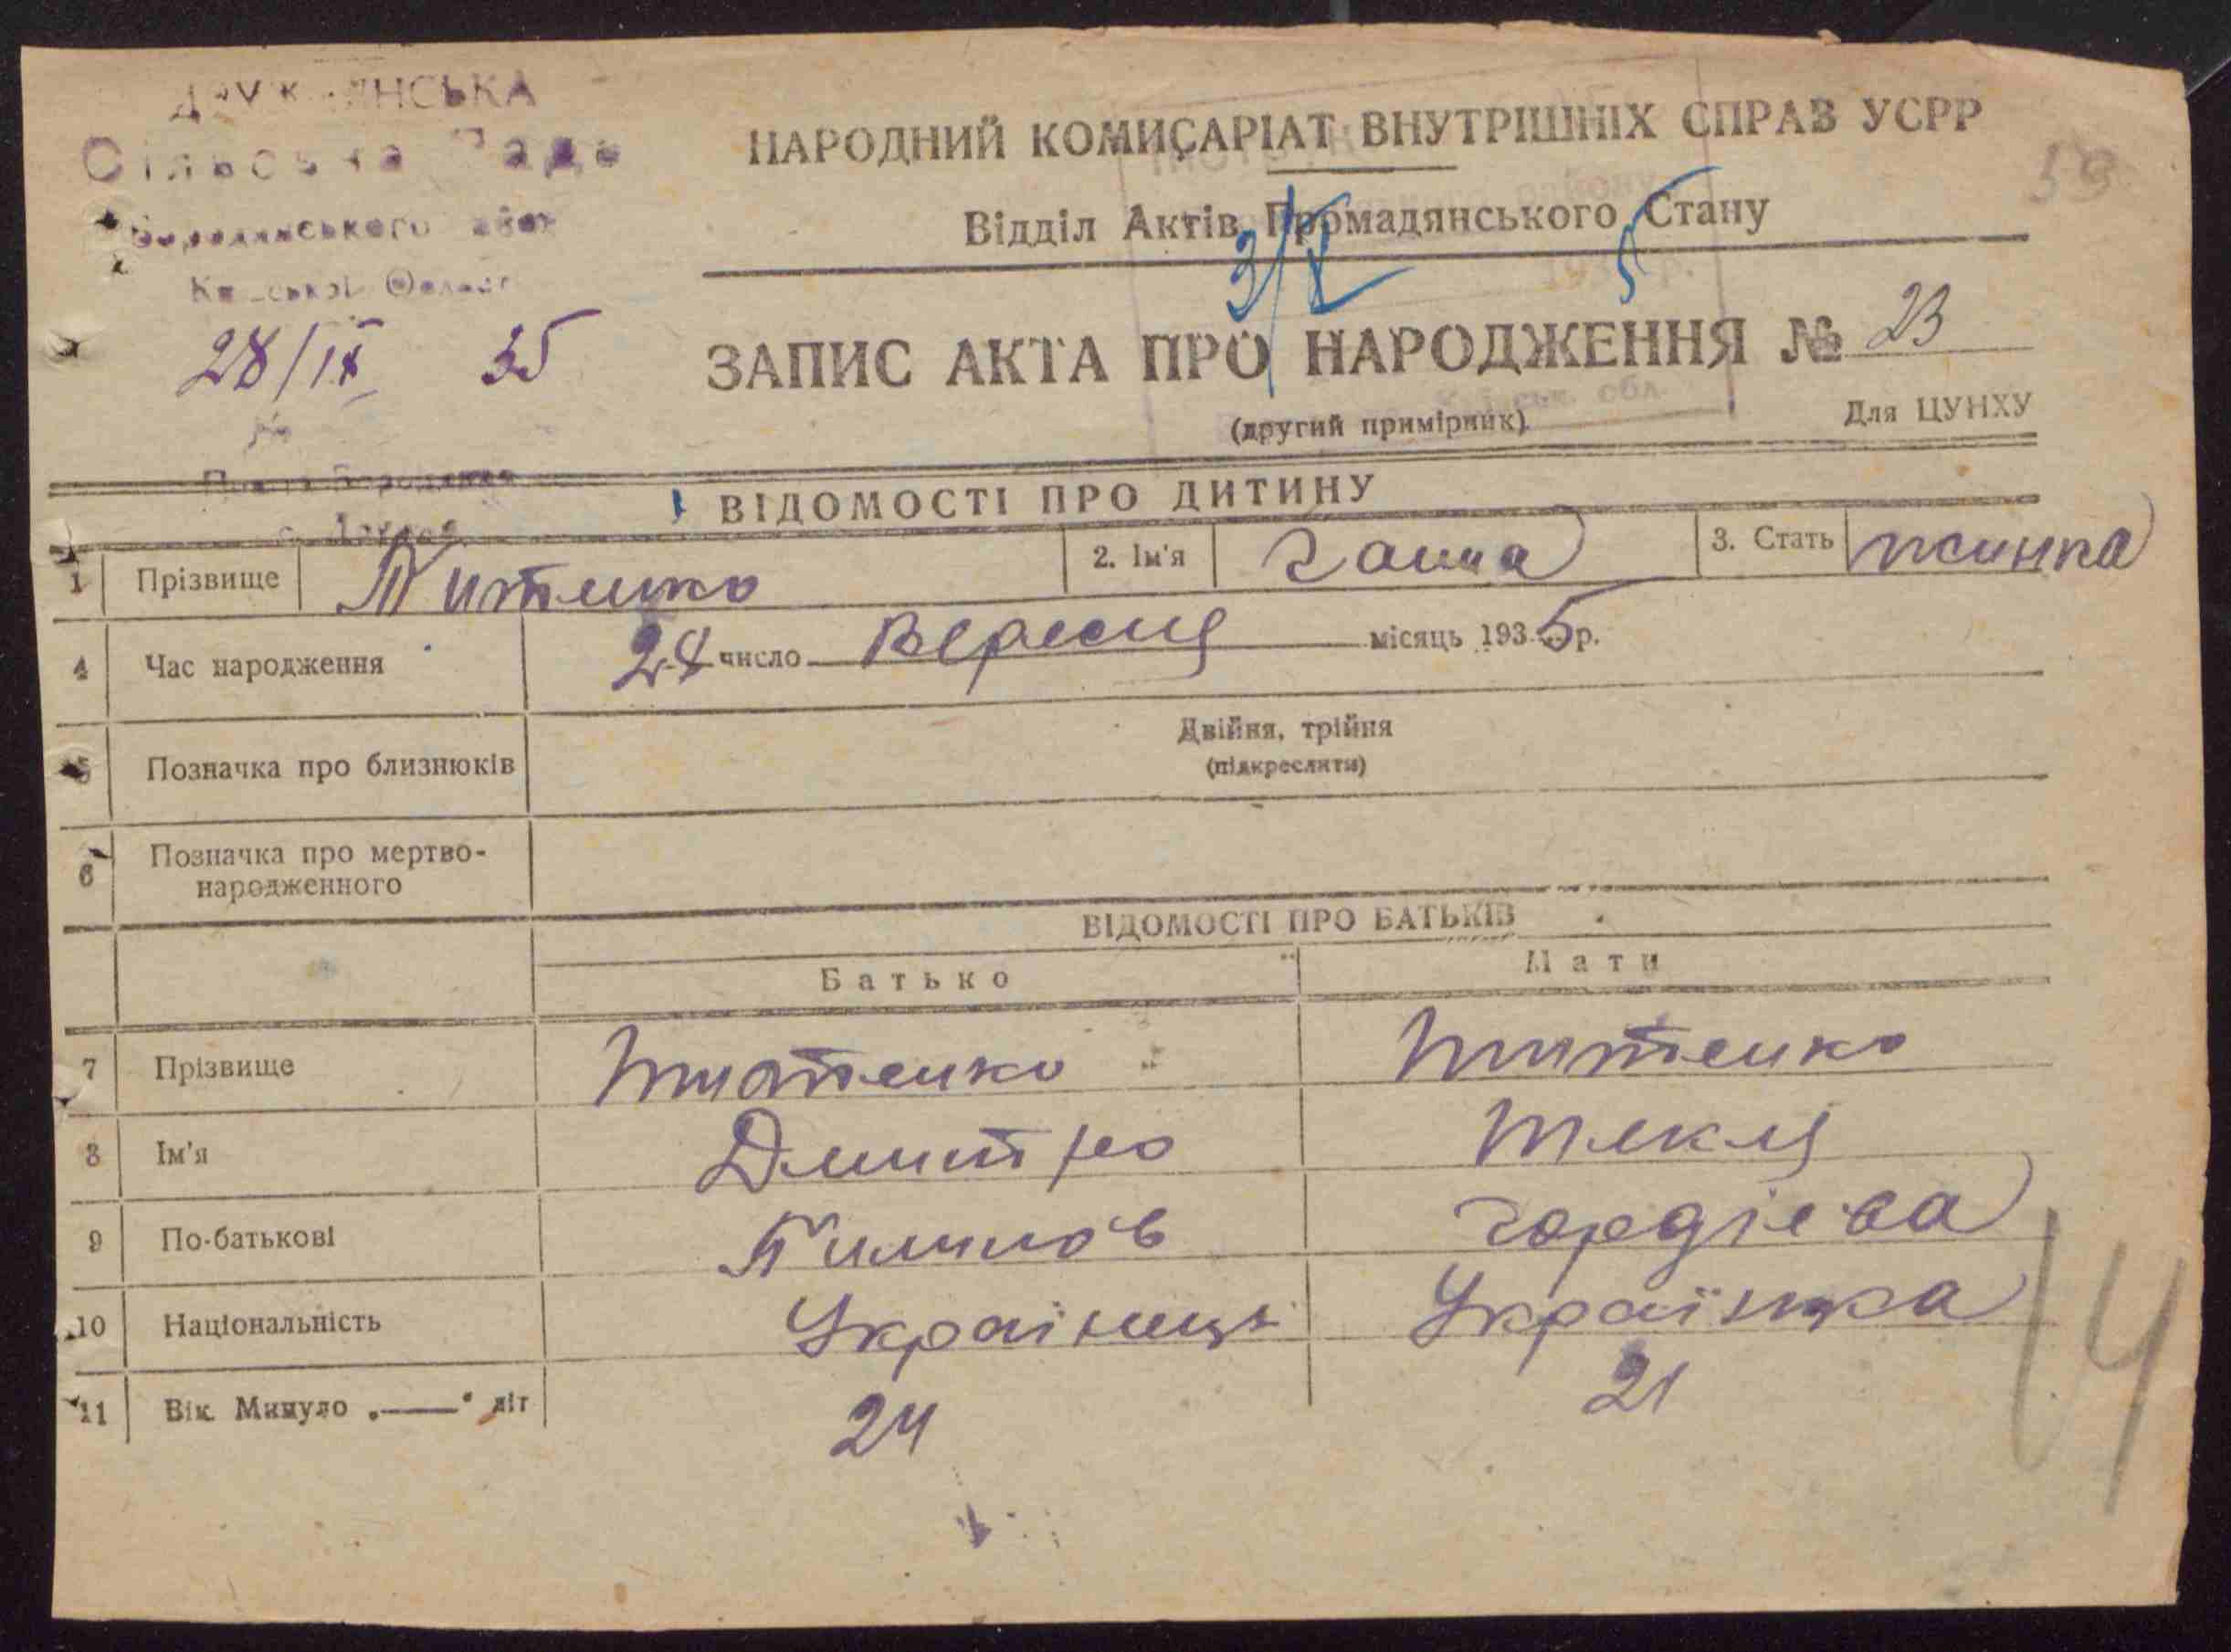 Сільська Рада
Бородянського
Київської Області
28/IX 35
НАРОДНИЙ КОМИСАРІАТ ВНУТРІШНІХ СПРАВ УСРР
59
Відділ Актів Громадянського Стану
3/X 5
ЗАПИС АКТА ПРО НАРОДЖЕННЯ № 23
(другий примірник)
Для ЦУНХУ
ВІДОМОСТІ ПРО ДИТИНУ
1 Прізвище Титенко 2. Ім'я Ганна 3. Стать жінка
4 Час народження 28 число Вересня місяць 1935 р.
5 Позначка про близнюків Двійня, трійня
(підкреслити)
6 Позначка про мертво-
народженного
ВІДОМОСТІ ПРО БАТЬКІВ
Батько Мати
7 Прізвище Титенко Титенко
8 Ім'я Дмитро Текля
9 По-батькові Гордієва
10 Національність Українець Українка
11 Вік. Минуло „——“ літ 24 21
14